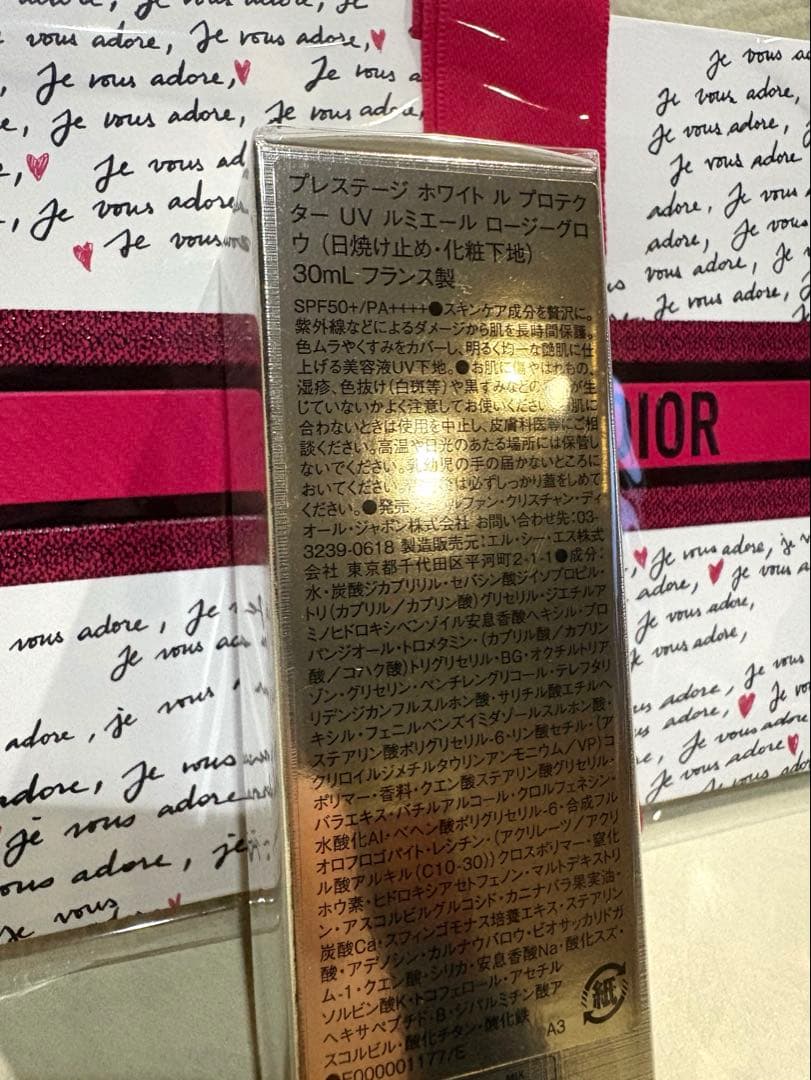 Je vous adore, Je vous adore,
Je vous adore, Je vous a
Je vous adore, Je vous adore,
Je vous ad
Je vous adore,
Je vous
Je vous adore,
Je vous adore,
Je vous adore
adore, Je vous
プレステージ ホワイト ル プロテク
ター UV ルミエール ロージーグロ
ウ (日焼け止め・化粧下地)
30mL フランス製
SPF50+/PA++++●スキンケア成分を贅沢に。
紫外線などによるダメージから肌を長時間保護。
色ムラやくすみをカバーし、明るく均一な艶肌に仕
上げる美容液UV下地。●お肌に傷やはれもの、
湿疹、色抜け(白斑等)や黒ずみなどの が生
じていないかよく注意してお使いください。 肌に
合わないときは使用を中止し、皮膚科医等にご相
談ください。高温や日光のあたる場所には保管し
ないでください。乳幼児の手の届かないところに
おいてください。 は必ずしっかり蓋をしめて
ください。●発売 ルファン・クリスチャン・ディ
オール・ジャポン株式会社 お問い合わせ先:03-
3239-0618 製造販売元:エル・シー・エス株式
会社 東京都千代田区平河町2-1-1●成分:
水・炭酸ジカプリリル・セバシン酸ジイソプロピル・
トリ(カプリル/カプリン酸)グリセリル・ジエチルア
ミノヒドロキシベンゾイル安息香酸ヘキシル・プロ
パンジオール・トロメタミン・(カプリル酸/カプリン
酸/コハク酸)トリグリセリル・BG・オクチルトリア
ゾン・グリセリン・ペンチレングリコール・テレフタリ
リデンジカンフルスルホン酸・サリチル酸エチルヘ
キシル・フェニルベンズイミダゾールスルホン酸・
ステアリン酸ポリグリセリル-6・リン酸セチル・(ア
クリロイルジメチルタウリンアンモニウム/VP)コ
ポリマー・香料・クエン酸ステアリン酸グリセリル・
バラエキス・バチルアルコール・クロルフェネシン・
水酸化Al・ベヘン酸ポリグリセリル-6・合成フル
オロフロゴパイト・レシチン・(アクリレーツ/アクリ
ル酸アルキル(C10-30))クロスポリマー・窒化
ホウ素・ヒドロキシアセトフェノン・マルトデキストリ
ン・アスコルビルグルコシド・カニナバラ果実油・
炭酸Ca・スフィンゴモナス培養エキス・ステアリン
酸・アデノシン・カルナウバロウ・ビオサッカリドガ
ム-1・クエン酸・シリカ・安息香酸Na・酸化スズ・
ソルビン酸K・トコフェロール・アセチル
ヘキサペプチド-8・ジパルミチン酸ア
スコルビル・酸化チタン・酸化鉄
●E000001177/E
紙
A3
DIOR
vous adore, Je
Je vous
adore, je vous
adore, Je vous
je vous adore
vous adore, je
Je vous
Je vous adore, je
Je vous adore,
Je vous adore